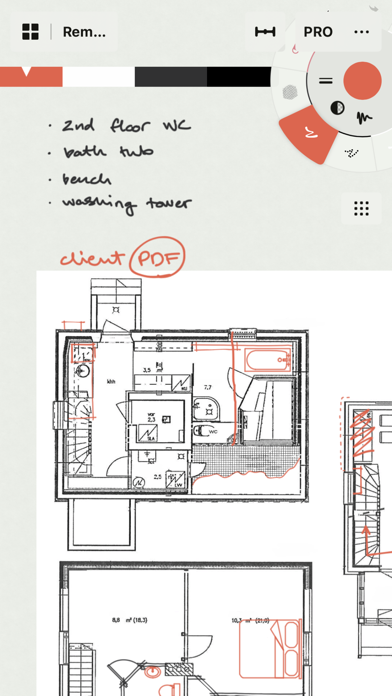 Rem...
PRO
· 2nd floor WC
· bath two
· bench
· washing tower
client PDF
3,5
khh
7,7
var
2,3
WC
2,5
8,8 m² (18,3)
10,3 m² (21,0)